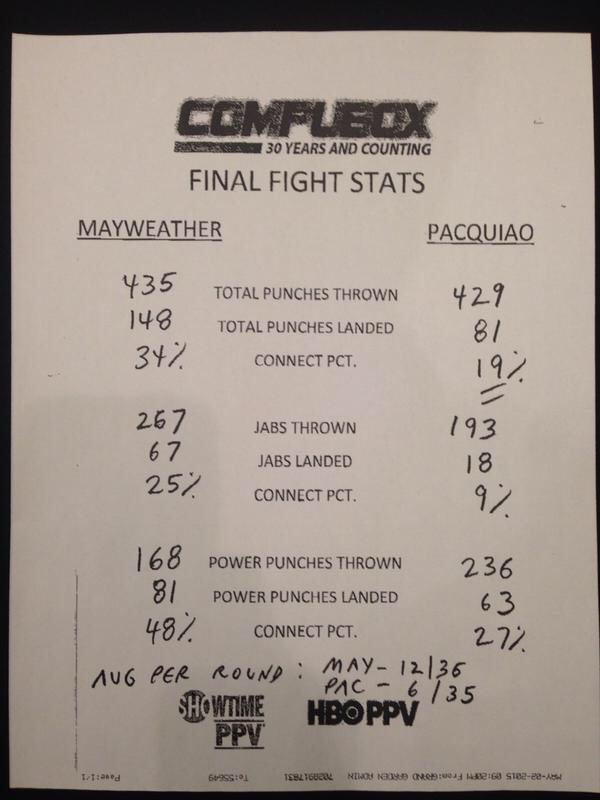 COMPUBOX
30 YEARS AND COUNTING
FINAL FIGHT STATS
MAYWEATHER PACQUIAO
435 TOTAL PUNCHES THROWN 429
148 TOTAL PUNCHES LANDED 81
34% CONNECT PCT. 19%
267 JABS THROWN 193
67 JABS LANDED 18
25% CONNECT PCT. 9%
168 POWER PUNCHES THROWN 236
81 POWER PUNCHES LANDED 63
48% CONNECT PCT. 27%
AVG PER ROUND: MAY - 12/36
PAC - 6/35
SHOWTIME PPV HBO PPV
MAY-02-2015 09:20PM From:GRAND GARDEN ADMIN 7028917831 To:55649 Page:1/1